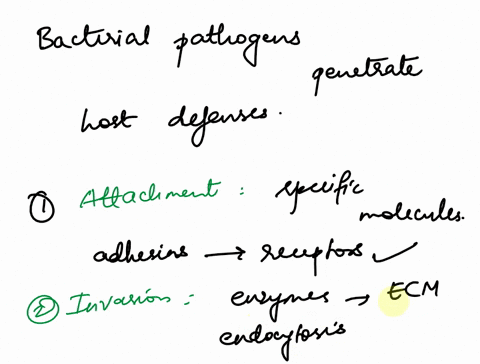 Bacterial pathogens
penetrate
host defenses.
① Attachment : specific
molecules.
adhesins → receptors ✓
② Invasion : enzymes → ECM
endocytosis